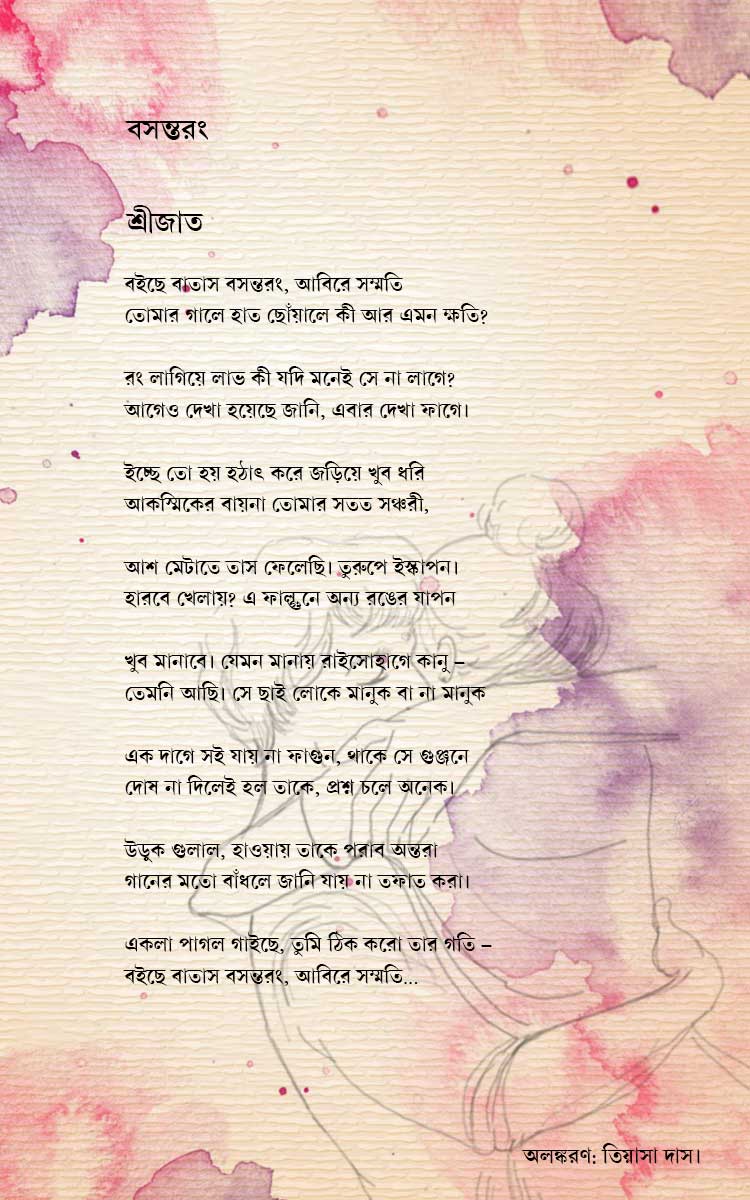 বসন্তরং
শ্রীজাত
বইছে বাতাস বসন্তরং, আবিরে সম্মতি
তোমার গালে হাত ছোঁয়ালে কী আর এমন ক্ষতি?
রং লাগিয়ে লাভ কী যদি মনেই সে না লাগে?
আগেও দেখা হয়েছে জানি, এবার দেখা ফাগে।
ইচ্ছে তো হয় হঠাৎ করে জড়িয়ে খুব ধরি
আকস্মিকের বায়না তোমার সতত সঞ্চরী,
আশ মেটাতে তাস ফেলেছি। তুরুপে ইস্কাপন।
হারবে খেলায়? এ ফাল্গুনে অন্য রঙের যাপন
খুব মানাবে। যেমন মানায় রাইসোহাগে কানু –
তেমনি আছি। সে ছাই লোকে মানুক বা না মানুক
এক দাগে সই যায় না ফাগুন, থাকে সে গুঞ্জনে
দোষ না দিলেই হল তাকে, প্রশ্ন চলে অনেক।
উড়ুক গুলাল, হাওয়ায় তাকে পরাব অন্তরা
গানের মতো বাঁধলে জানি যায় না তফাত করা।
একলা পাগল গাইছে, তুমি ঠিক করো তার গতি –
বইছে বাতাস বসন্তরং, আবিরে সম্মতি...
অলঙ্করণ: তিয়াসা দাস।